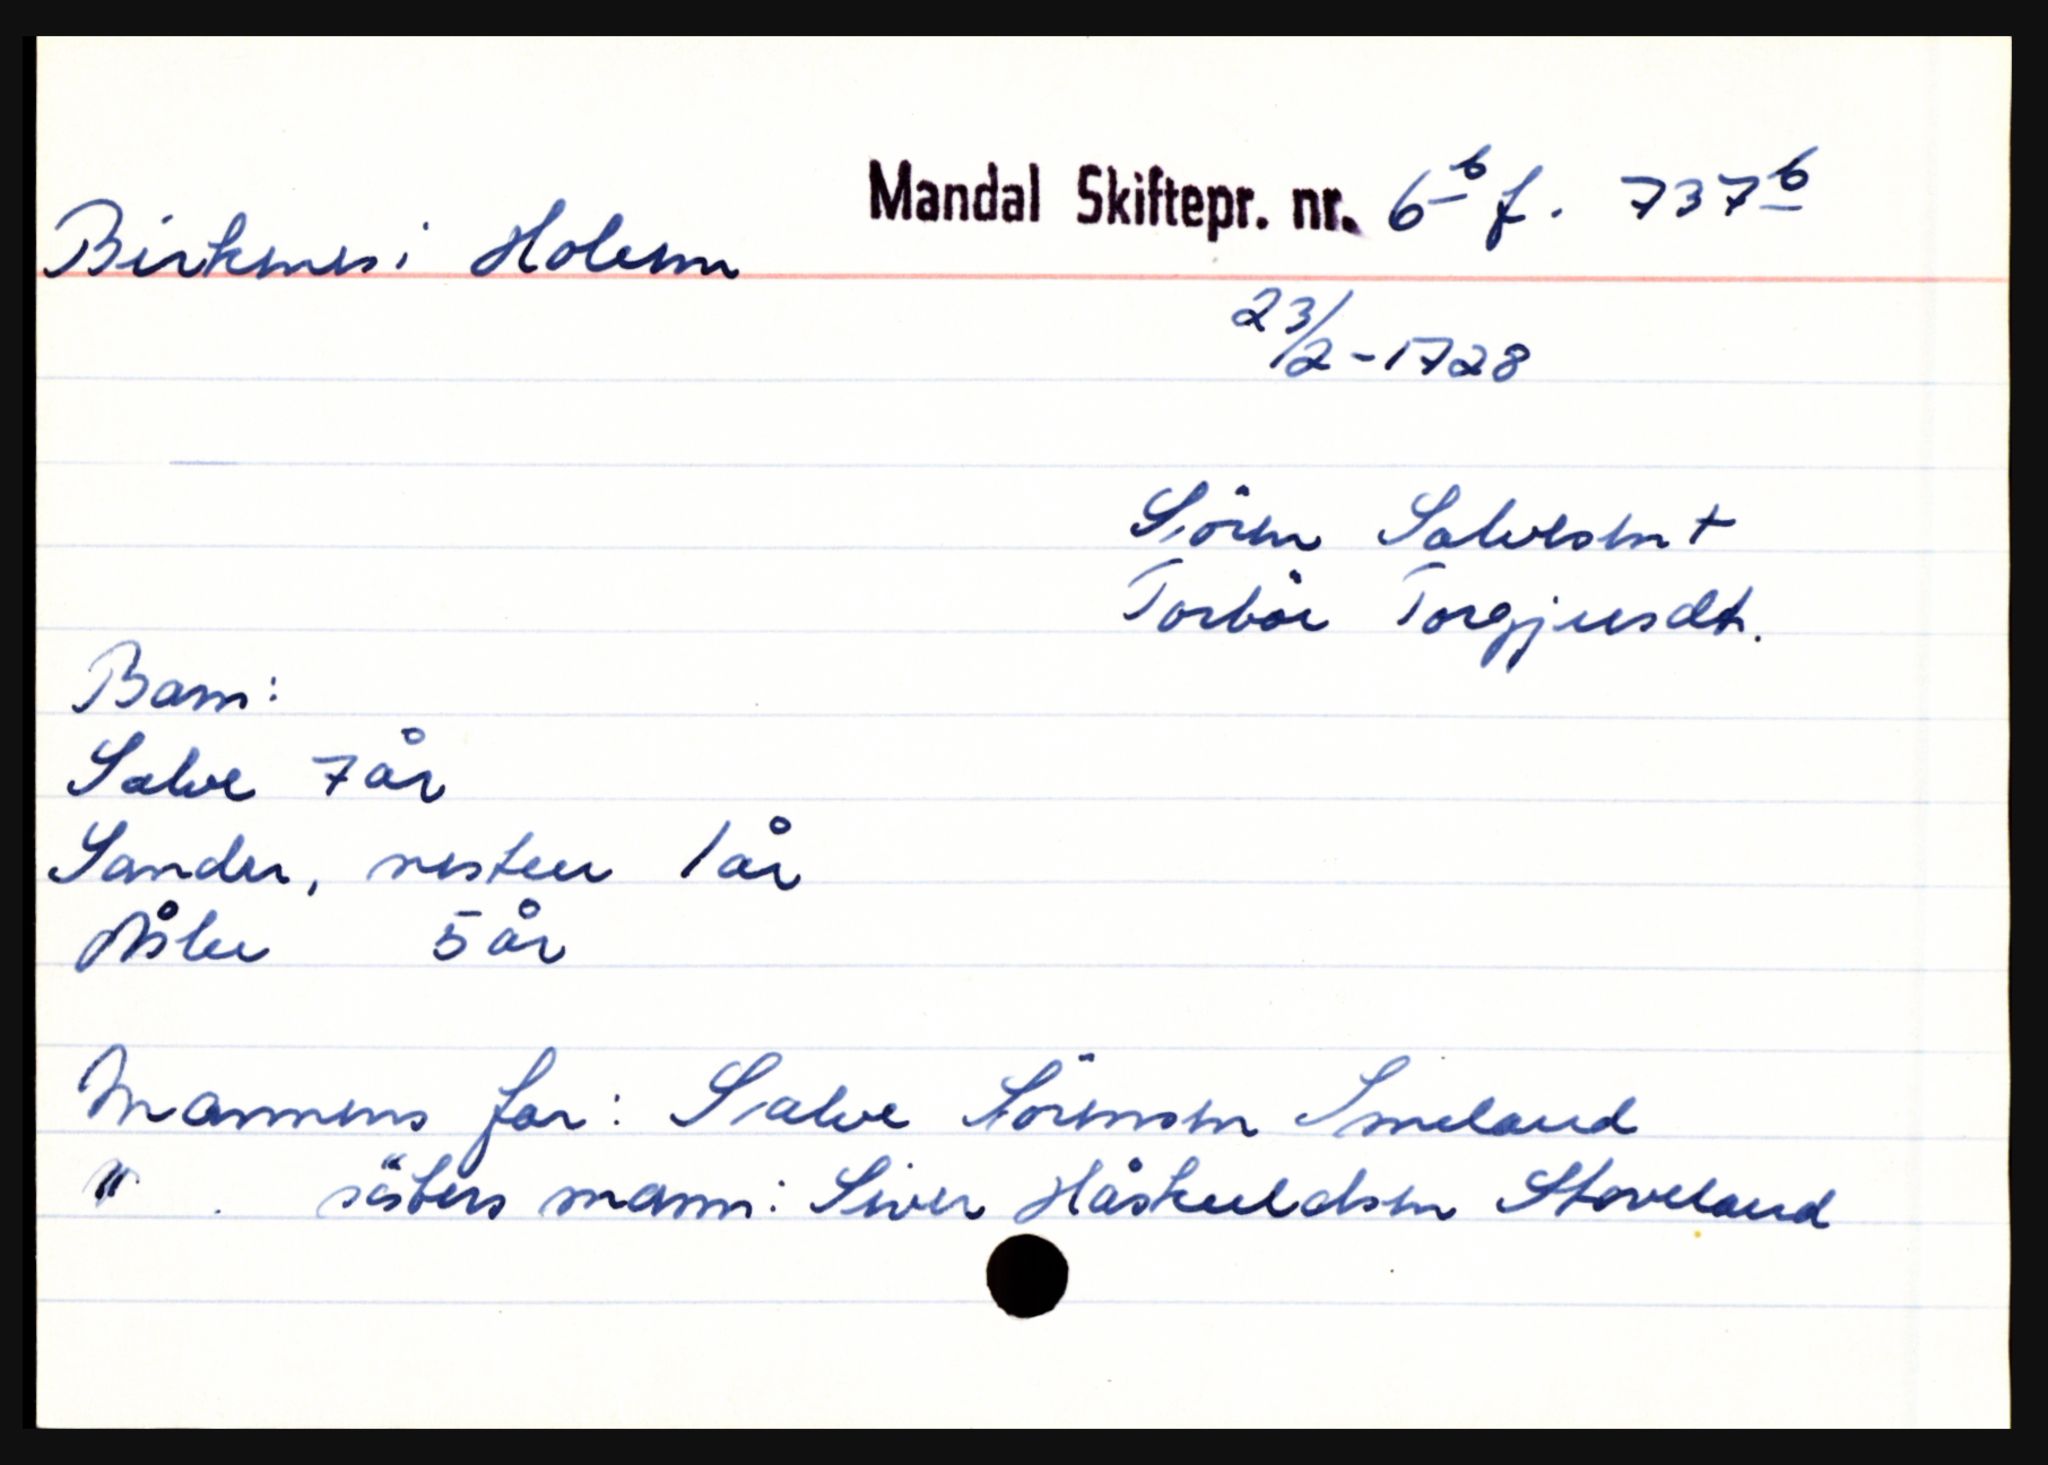 Mandal Skiftepr. nr. 6b f. 737b
Birkenes i Holum
23/2-1728
Sören Salvesen +
Torbör Torgjusdt.
Barn:
Salve 7 år
Sander, nesten 1 år
Åsler 5 år
Mannens far: Salve Sörensen Imeland
" . sösters mann: Siver Håskuldsen Stoveland